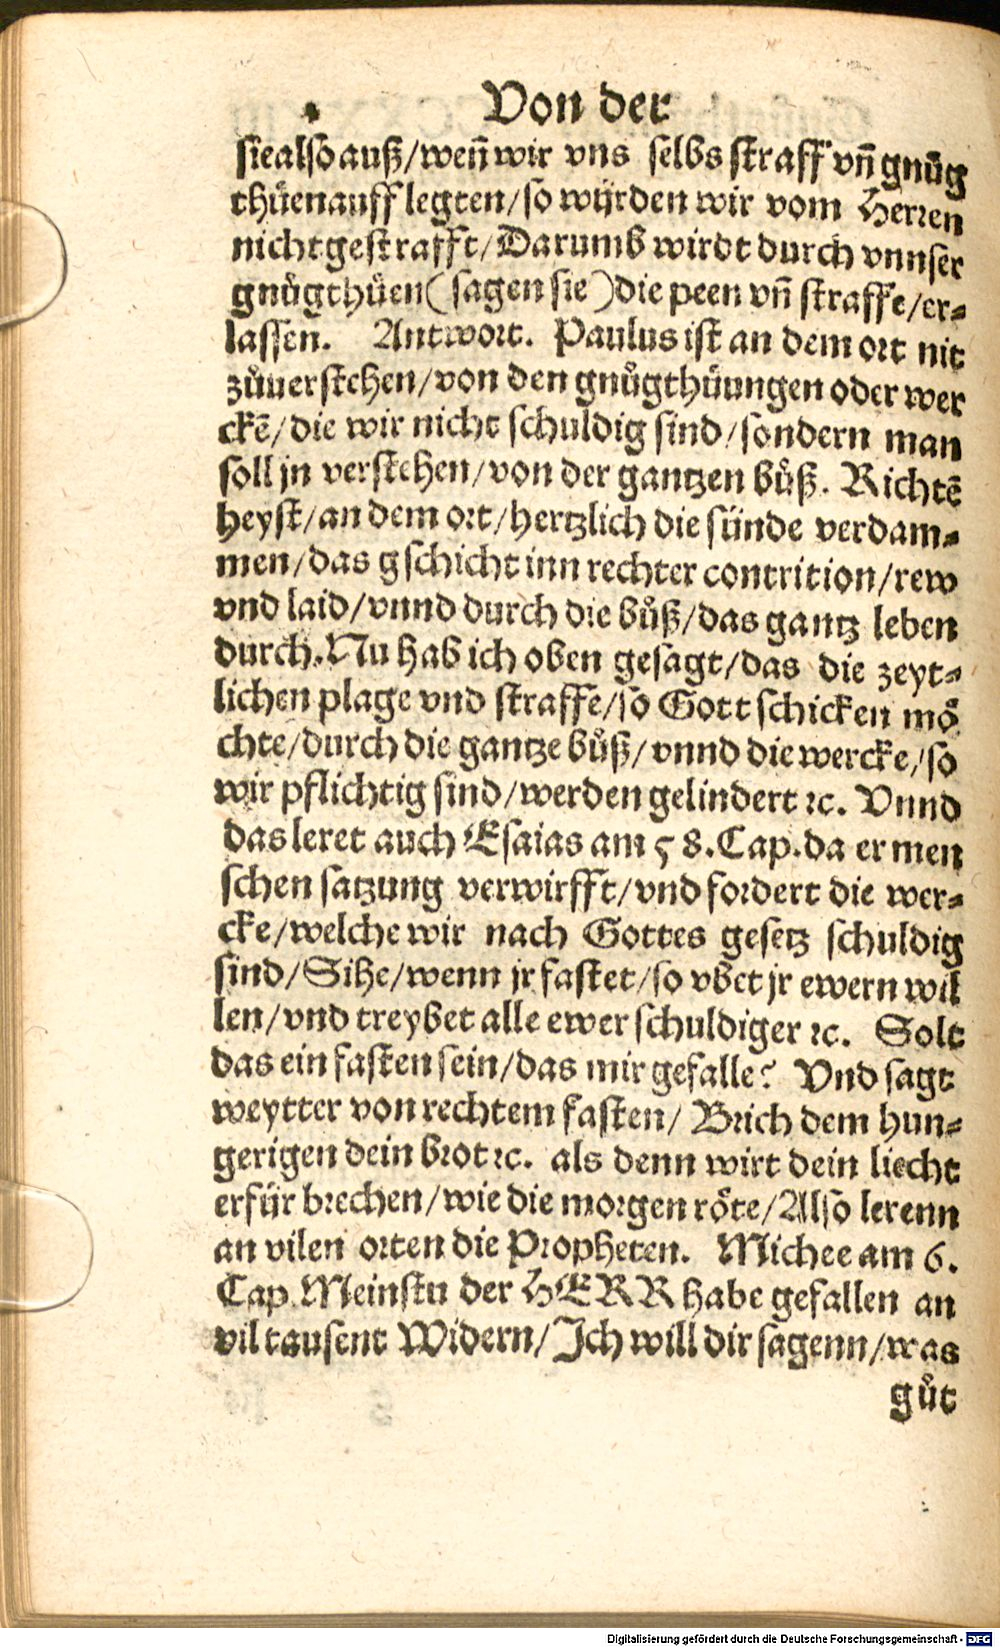 Von der
sie also auß/ weñ wir vns selbs straff vñ gnůg
thüen auff legten/ so würden wir vom Herren
nicht gestrafft/ Darumb wirdt durch vnnser
gnůgthüen (sagen sie) die peen vñ straffe/ er-
lassen. Antwort. Paulus ist an dem ort nit
zůuerstehen/ von den gnůgthüungen oder wer
ckē/ die wir nicht schuldig sind/ sondern man
soll jn verstehen/ von der gantzen bůß. Richtē
heyst/ an dem ort/ hertzlich die sünde verdam-
men/ das gschicht inn rechter contrition/ rew
vnd laid/ vnnd durch die bůß/ das gantz leben
durch. Nu hab ich oben gesagt/ das die zeyt-
lichen plage vnd straffe/ so Gott schicken mö
chte/ durch die gantze bůß/ vnnd die wercke/ so
wir pflichtig sind/ werden gelindert ꝛc. Vnnd
das leret auch Esaias am 58. Cap. da er men
schen satzung verwirfft/ vnd fordert die wer-
cke/ welche wir nach Gottes gesetz schuldig
sind/ Sihe/ wenn jr fastet/ so vbet jr ewern wil
len/ vnd treybet alle ewer schuldiger ꝛc. Solt
das ein fasten sein/ das mir gefalle? Vnd sagt
weytter von rechtem fasten/ Brich dem hun-
gerigen dein brot ꝛc. als denn wirt dein liecht
erfür brechen/ wie die morgen röte/ Also lerenn
an vilen orten die Propheten. Michee am 6.
Cap. Meinstu der HERR habe gefallen an
vil tausent Widern/ Ich will dir sagenn/ was
gůt
Digitalisierung gefördert durch die Deutsche Forschungsgemeinschaft - DFG